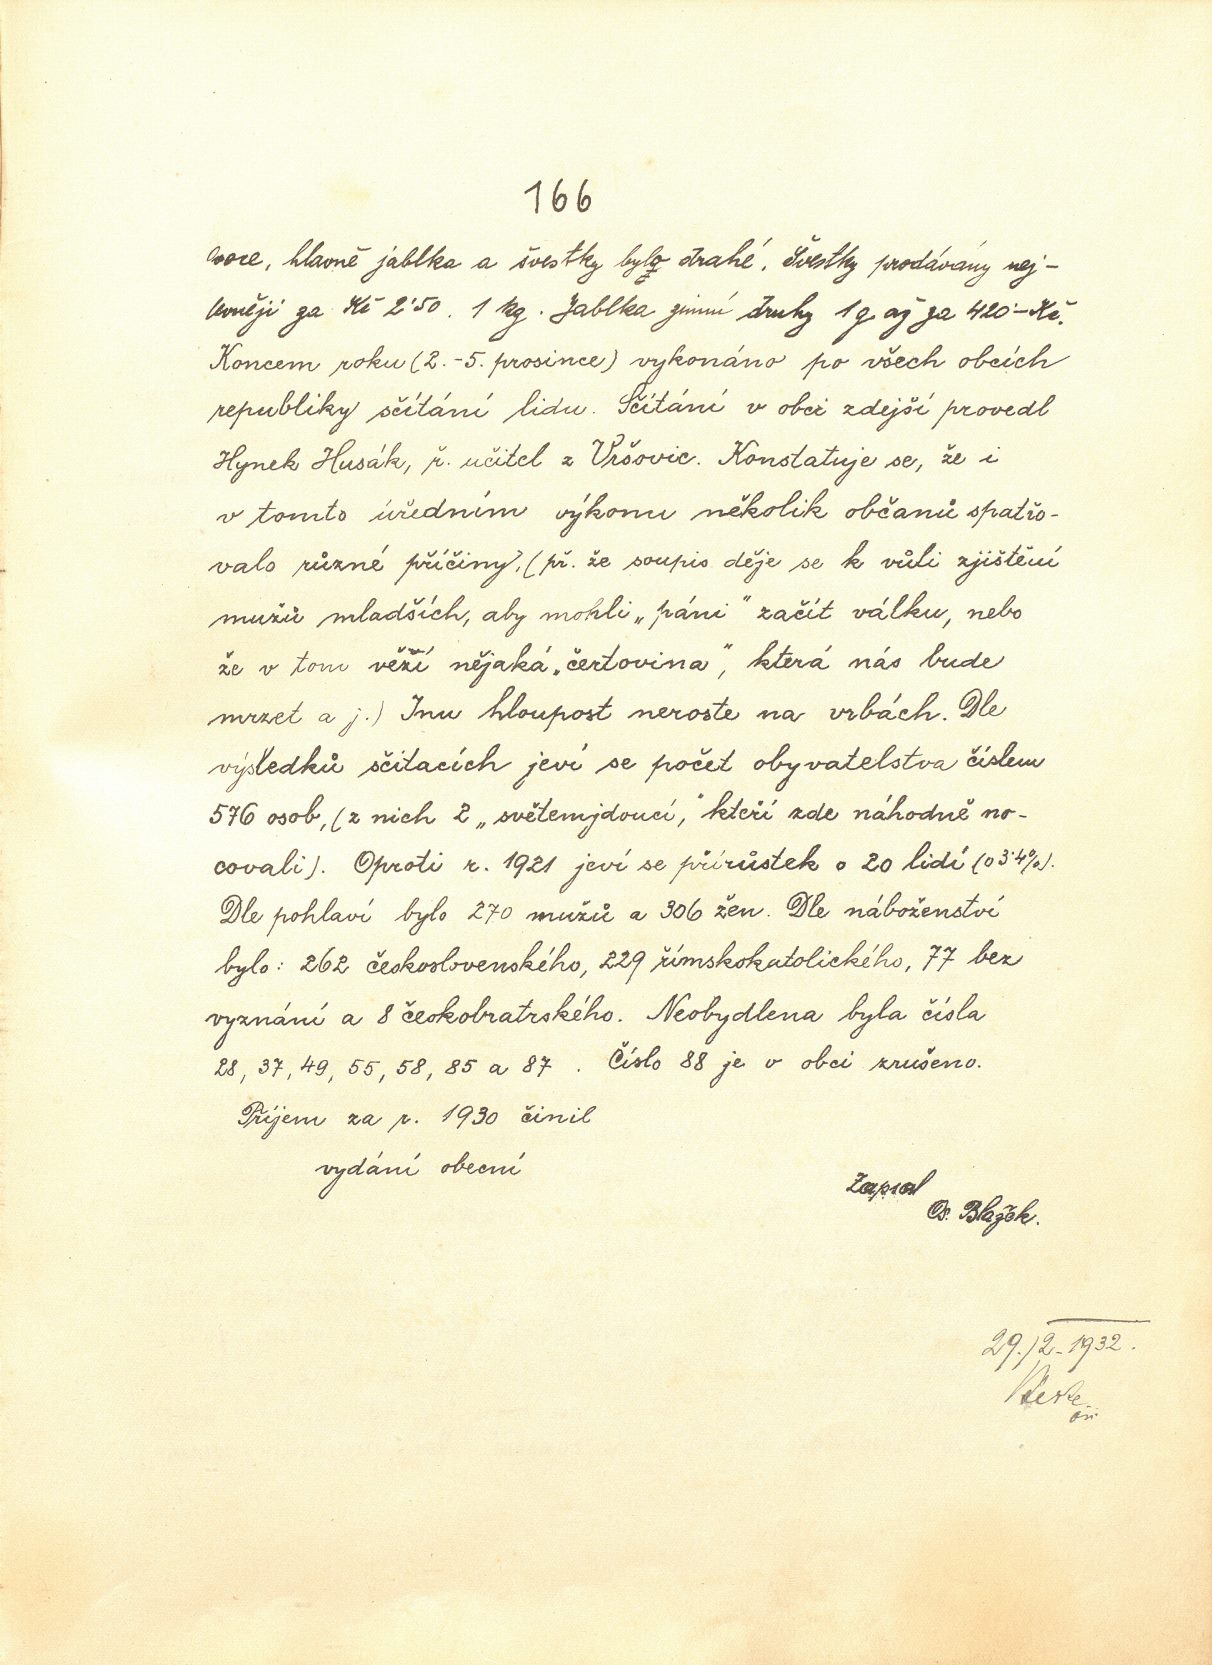 166
ovoce, hlavně jablka a švestky bylo drahé. Švestky prodávány nej-
levněji za Kč 2'50. 1 kg. Jablka zimní druhy 1 q až za 420·-Kč.
Koncem roku (2.-5. prosince) vykonáno po všech obcích
republiky sčítání lidu. Sčítání v obci zdejší provedl
Hynek Husák, ř. učitel z Vršovic. Konstatuje se, že i
v tomto úředním výkonu několik občanů spatřo-
valo různé příčiny, (př. že soupis děje se k vůli zjištění
mužů mladších, aby mohli „páni" začít válku, nebo
že v tom vězí nějaká „čertovina", která nás bude
mrzet a j.) Inu hloupost neroste na vrbách. Dle
výsledků sčítacích jeví se počet obyvatelstva číslem
576 osob, (z nich 2 „světemjdoucí," kteří zde náhodně no-
covali). Oproti r. 1921 jeví se přírůstek o 20 lidí (o 3'4%).
Dle pohlaví bylo 270 mužů a 306 žen. Dle náboženství
bylo: 262 československého, 229 římskokatolického, 77 bez
vyznání a 8 českobratrského. Neobydlena byla čísla
28, 37, 49, 55, 58, 85 a 87. Číslo 88 je v obci zrušeno.
Příjem za r. 1930 činil
vydání obecní
Zapsal
Os. Blažek.
29./2.-1932.